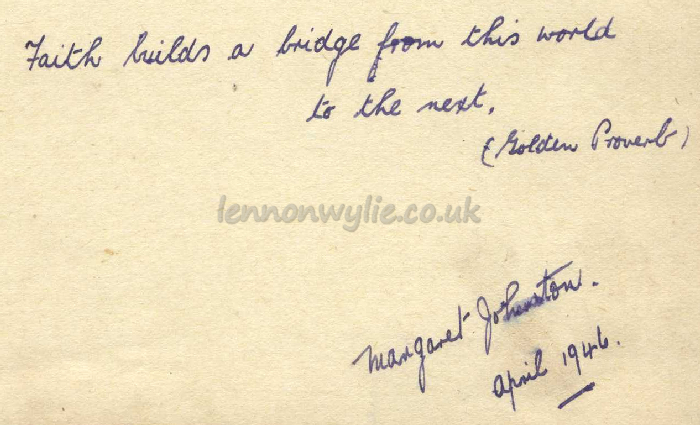 Faith builds a bridge from this world
to the next.
(Golden Proverb)
lennonwylie.co.uk
Margaret Johnston.
April 1946.